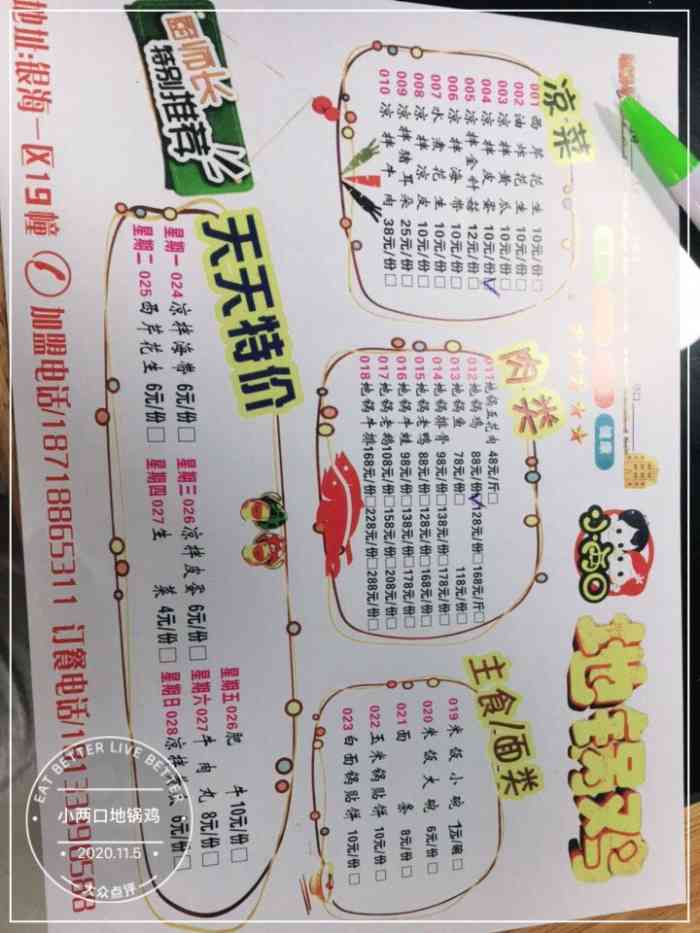 地锅鸡
健康
凉菜
001 西芹花生 10元/份
002 油炸花生 10元/份
003 凉拌黄瓜 10元/份
004 凉拌皮蛋 10元/份
005 凉拌金针菇 12元/份
006 凉拌海带 10元/份
007 水煮花生 10元/份
008 凉拌凉皮 10元/份
009 凉拌猪耳朵 25元/份
010 凉拌牛肉 38元/份
肉类
011 地锅五花肉 48元/斤
012 地锅鸡 88元/份 128元/份 168元/斤
013 地锅鱼 78元/份 118元/份
014 地锅排骨 98元/份 138元/份 178元/份
015 地锅老鸭 88元/份 128元/份 168元/份
016 地锅牛蛙 98元/份 138元/份 178元/份
017 地锅老鸡 108元/份 158元/份 208元/份
018 地锅牛排 168元/份 228元/份 288元/份
主食/面类
019 米饭小碗 1元/碗
020 米饭大碗 6元/份
021 面条 8元/份
022 玉米锅贴饼 10元/份
023 白面锅贴饼 10元/份
厨师长
特别推荐
天天特价
星期一 024 凉拌海带 6元/份
星期二 025 西芹花生 6元/份
星期三 026 凉拌皮蛋 6元/份
星期四 027 生菜 4元/份
星期五 026 肥牛 10元/份
星期六 027 牛肉丸 8元/份
星期日 028 凉拌 6元/份
地址:银海一区19幢 加盟电话/18718865311 订餐电话/
EAT BETTER LIVE BETTER
小两口地锅鸡
2020.11.5
大众点评